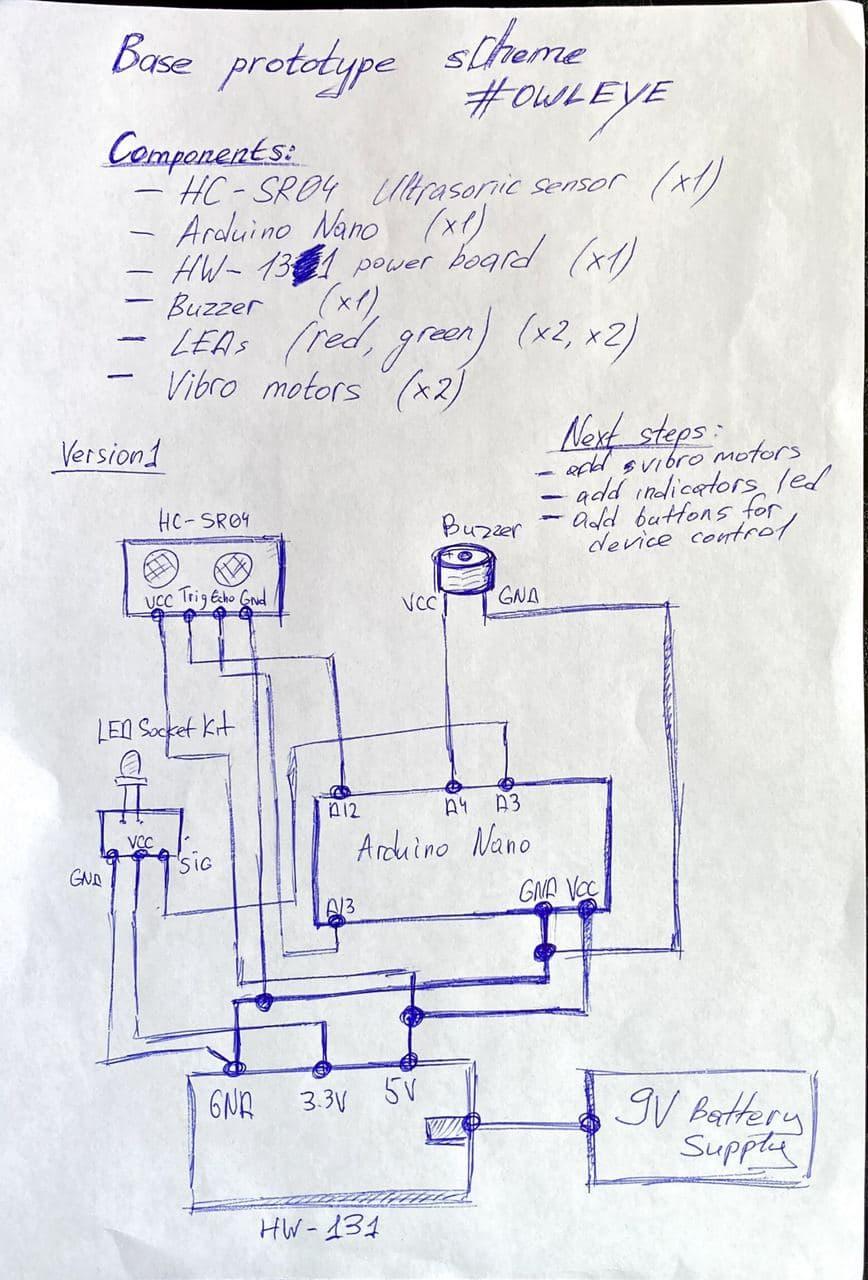 Base prototype scheme
#OWLEYE
Components:
– HC-SR04 Ultrasonic sensor (x1)
– Arduino Nano (x1)
– HW-131 power board (x1)
– Buzzer (x1)
– LEDs (red, green) (x2, x2)
– Vibro motors (x2)
Next steps:
– add vibro motors
– add indicators led
– add buttons for
device control
Version1
HC-SR04
VCC Trig Echo Gnd
Buzzer
+
VCC GND
LED Socket Kit
VCC
GND SIG
D12 D4 D3
Arduino Nano
D13
GND VCC
GND 3.3V 5V
HW-131
9V Battery
Supply